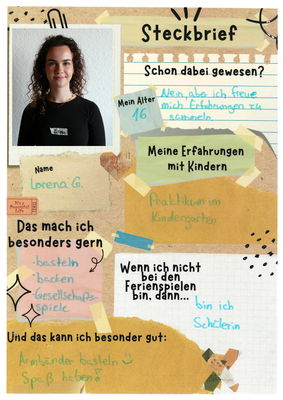 Steckbrief
Schon dabei gewesen?
Nein, aber ich freue
mich Erfahrungen zu
sammeln
Mein Alter
16
Name
Lorena G.
Meine Erfahrungen
mit Kindern
Praktikum im
Kindergarten
Das mach ich
besonders gern
-basteln
-backen
-Gesellschafts
spiele
Wenn ich nicht
bei den
Ferienspielen
bin, dann...
bin ich
Schülerin
Und das kann ich besonder gut:
Armbänder basteln
Spaß haben!